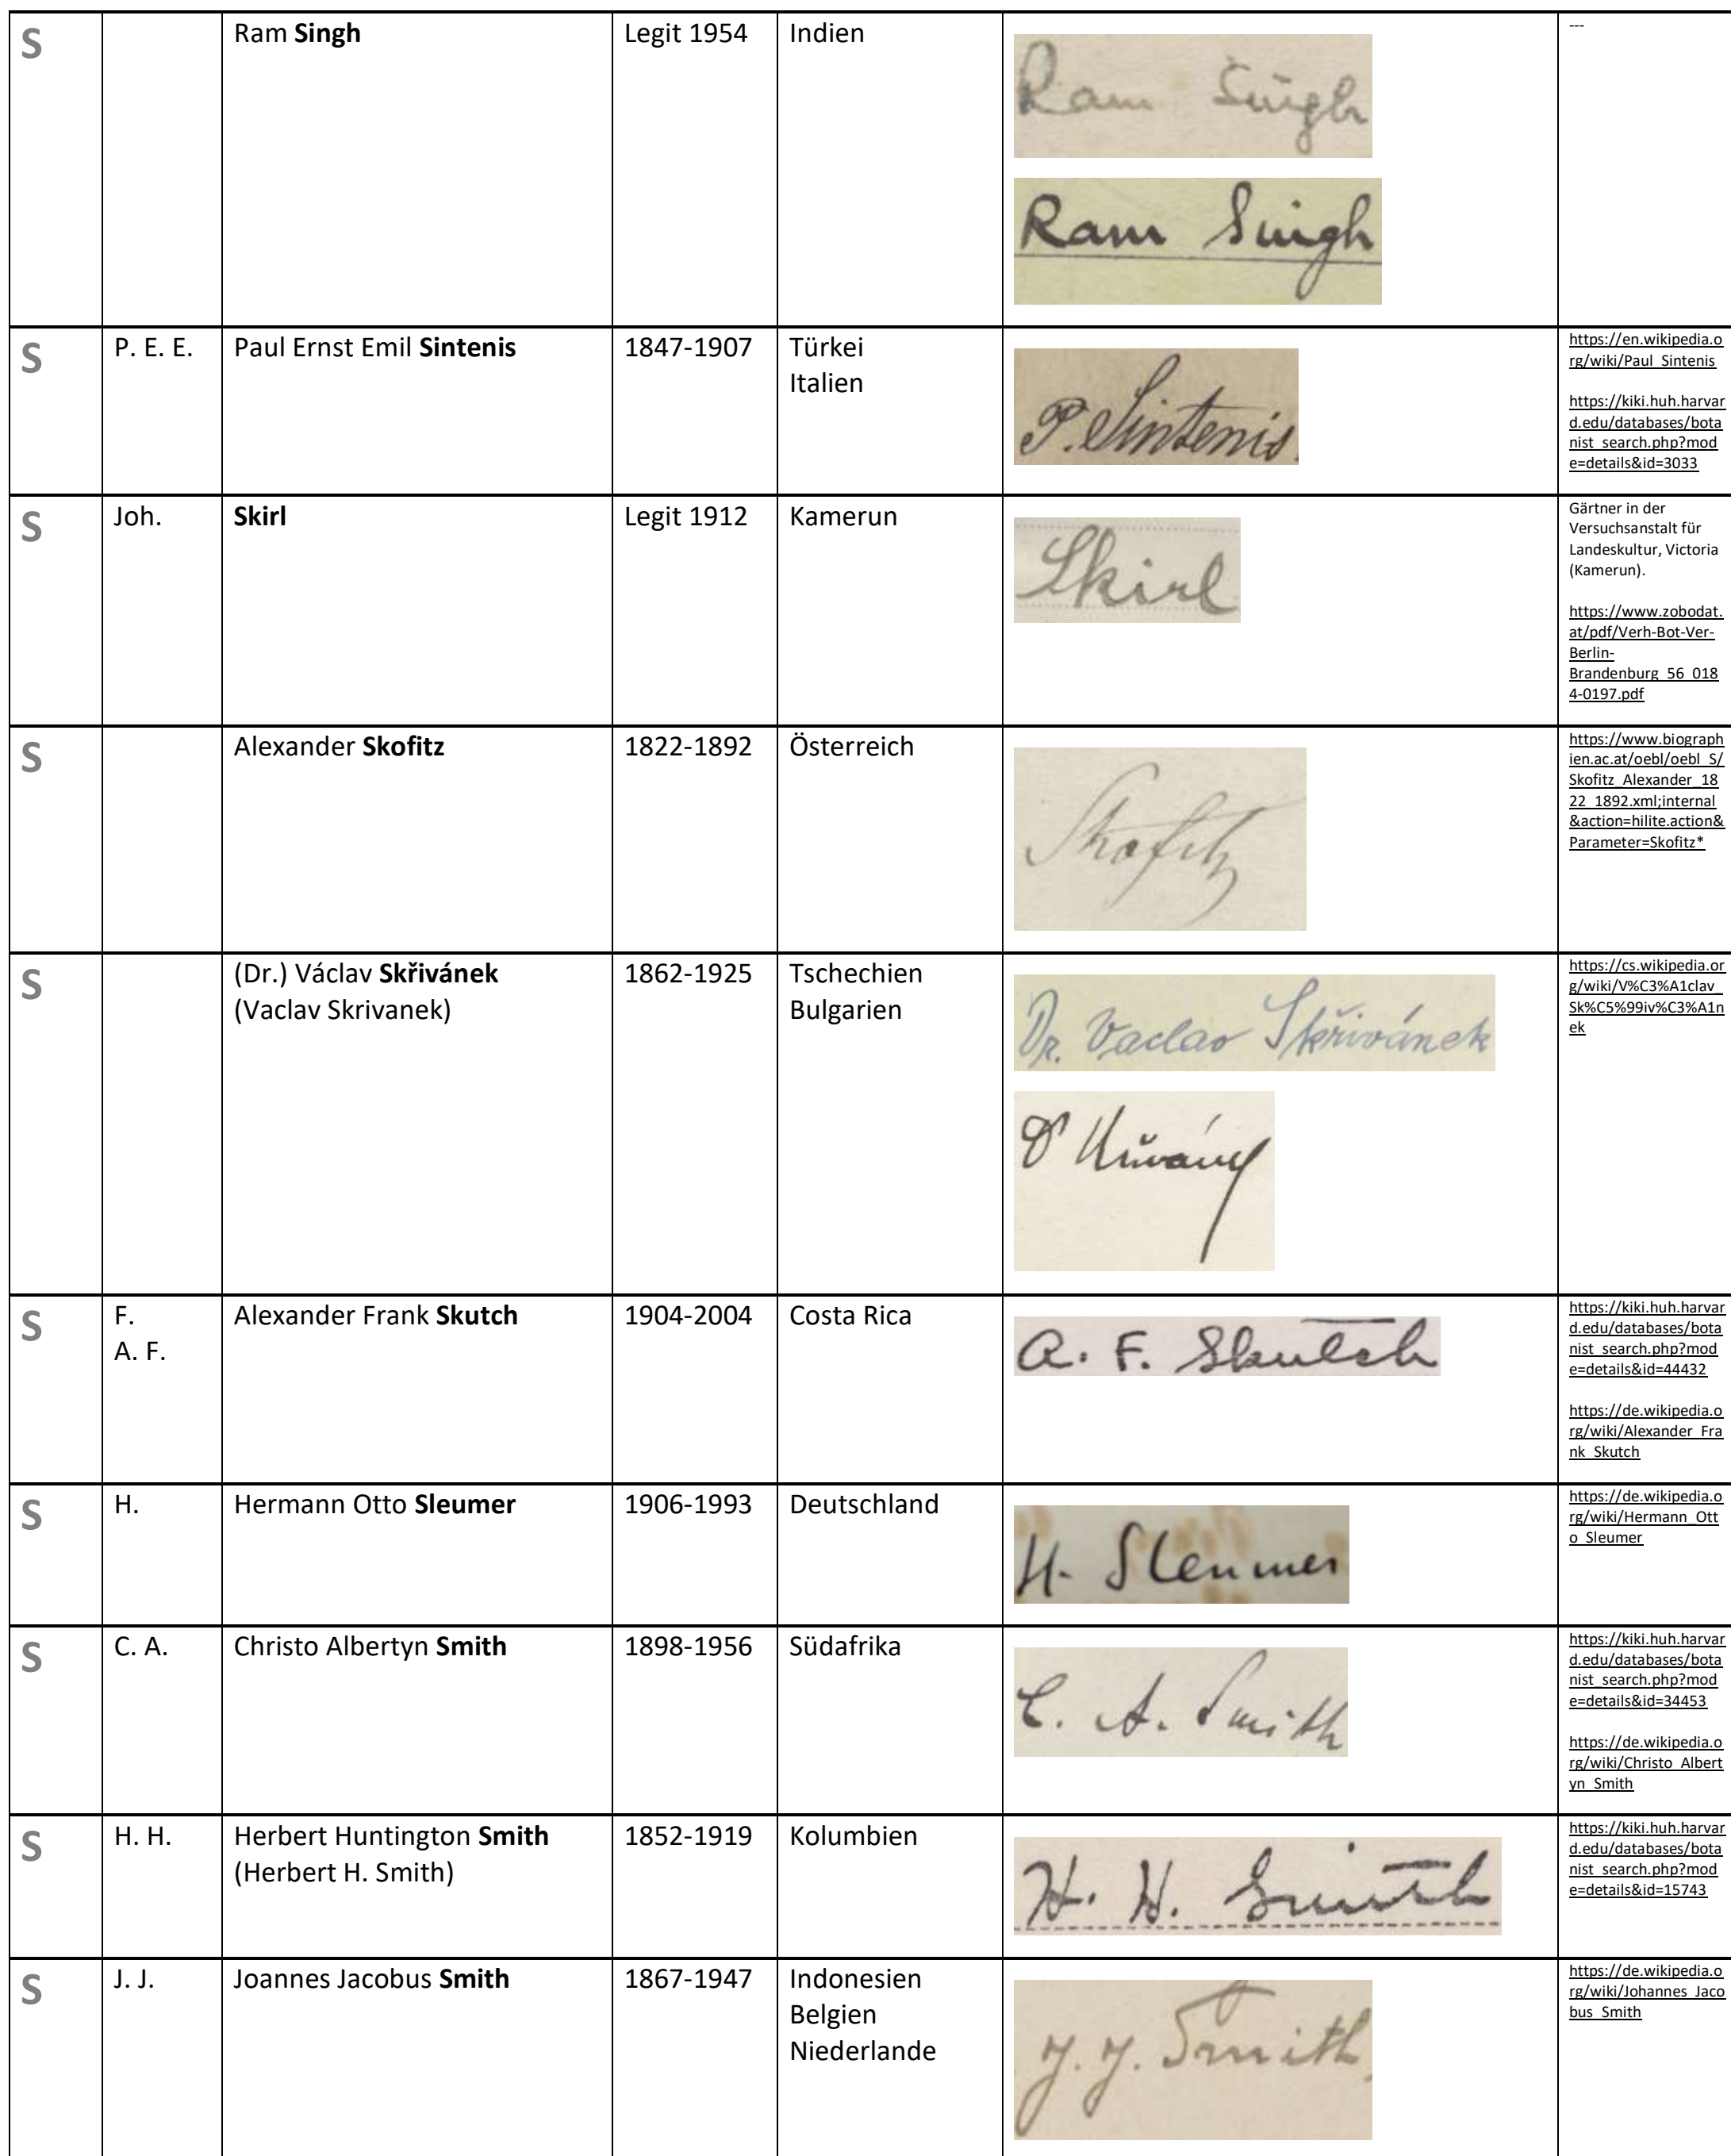 S
Ram Singh
Legit 1954
Indien
Ram Singh
Ram Singh
---
S
P. E. E.
Paul Ernst Emil Sintenis
1847-1907
Türkei
Italien
P. Sintenis.
https://en.wikipedia.o
rg/wiki/Paul_Sintenis
https://kiki.huh.harvar
d.edu/databases/bota
nist_search.php?mod
e=details&id=3033
S
Joh.
Skirl
Legit 1912
Kamerun
Skirl
Gärtner in der
Versuchsanstalt für
Landeskultur, Victoria
(Kamerun).
https://www.zobodat.
at/pdf/Verh-Bot-Ver-
Berlin-
Brandenburg_56_018
4-0197.pdf
S
Alexander Skofitz
1822-1892
Österreich
Skofitz
https://www.biograph
ien.ac.at/oebl/oebl_S/
Skofitz_Alexander_18
22_1892.xml;internal
&action=hilite.action&
Parameter=Skofitz*
S
(Dr.) Václav Skřivánek
(Vaclav Skrivanek)
1862-1925
Tschechien
Bulgarien
Dr. Vaclav Skřivánek
https://cs.wikipedia.or
g/wiki/V%C3%A1clav_
Sk%C5%99iv%C3%A1n
ek
S
F.
A. F.
Alexander Frank Skutch
1904-2004
Costa Rica
A. F. Skutch
https://kiki.huh.harvar
d.edu/databases/bota
nist_search.php?mod
e=details&id=44432
https://de.wikipedia.o
rg/wiki/Alexander_Fra
nk_Skutch
S
H.
Hermann Otto Sleumer
1906-1993
Deutschland
H. Sleumer
https://de.wikipedia.o
rg/wiki/Hermann_Ott
o_Sleumer
S
C. A.
Christo Albertyn Smith
1898-1956
Südafrika
C. A. Smith
https://kiki.huh.harvar
d.edu/databases/bota
nist_search.php?mod
e=details&id=34453
https://de.wikipedia.o
rg/wiki/Christo_Albert
yn_Smith
S
H. H.
Herbert Huntington Smith
(Herbert H. Smith)
1852-1919
Kolumbien
H. H. Smith
https://kiki.huh.harvar
d.edu/databases/bota
nist_search.php?mod
e=details&id=15743
S
J. J.
Joannes Jacobus Smith
1867-1947
Indonesien
Belgien
Niederlande
J. J. Smith
https://de.wikipedia.o
rg/wiki/Johannes_Jaco
bus_Smith